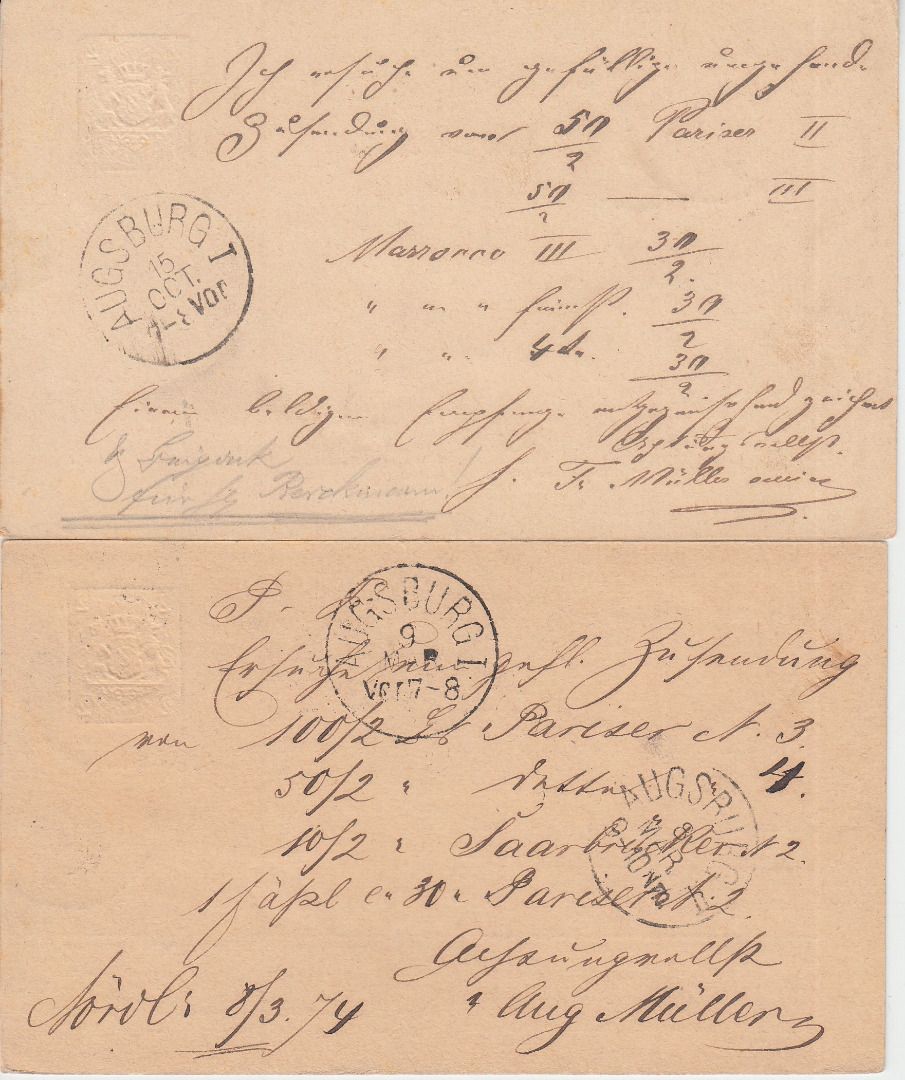 Ich ersuche um gefällige umgehende
Zusendung von 50/2 Pariser II
50/2 — III
Marrocco III 30/2
" " " 30/2
" " 4 30/2
Einem baldigen Empfange entgegensehend zeichnet
Achtungsvollst
Fr. Müller
für
AUGSBURG I
15
OCT.
VOR
P.
Ersuche um gefl. Zusendung
von 100/2 Pariser N. 3
50/2 " detto " 4.
10/2 " Saarbrücker N 2
1 Fäßl a 30 Pariser N. 2
Achtungsvollst
Nördl: 8/3. 74 Aug Müller
AUGSBURG I
9
MÄR
Vor 7-8
AUGSBURG
9
MÄR